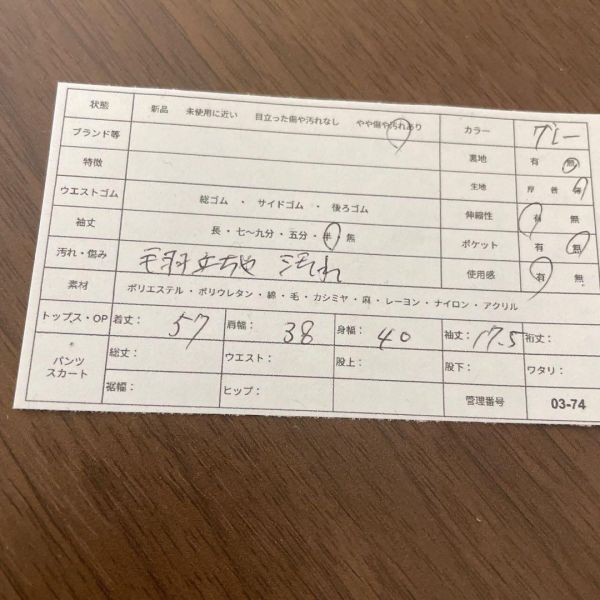 状態 新品 未使用に近い 目立った傷や汚れなし やや傷や汚れあり カラー グレー
ブランド等 裏地 有 無
特徴 生地 厚 普 薄
ウエストゴム 総ゴム ・ サイドゴム ・ 後ろゴム 伸縮性 有 無
袖丈 長・七〜九分・五分・半・無 ポケット 有 無
汚れ・傷み 毛羽立ちや 汚れ 使用感 有 無
素材 ポリエステル・ポリウレタン・綿・毛・カシミヤ・麻・レーヨン・ナイロン・アクリル
トップス・OP 着丈: 57 肩幅: 38 身幅: 40 袖丈: 17.5 裄丈:
パンツ スカート 総丈: ウエスト: 股上: 股下: ワタリ:
裾幅: ヒップ: 管理番号 03-74